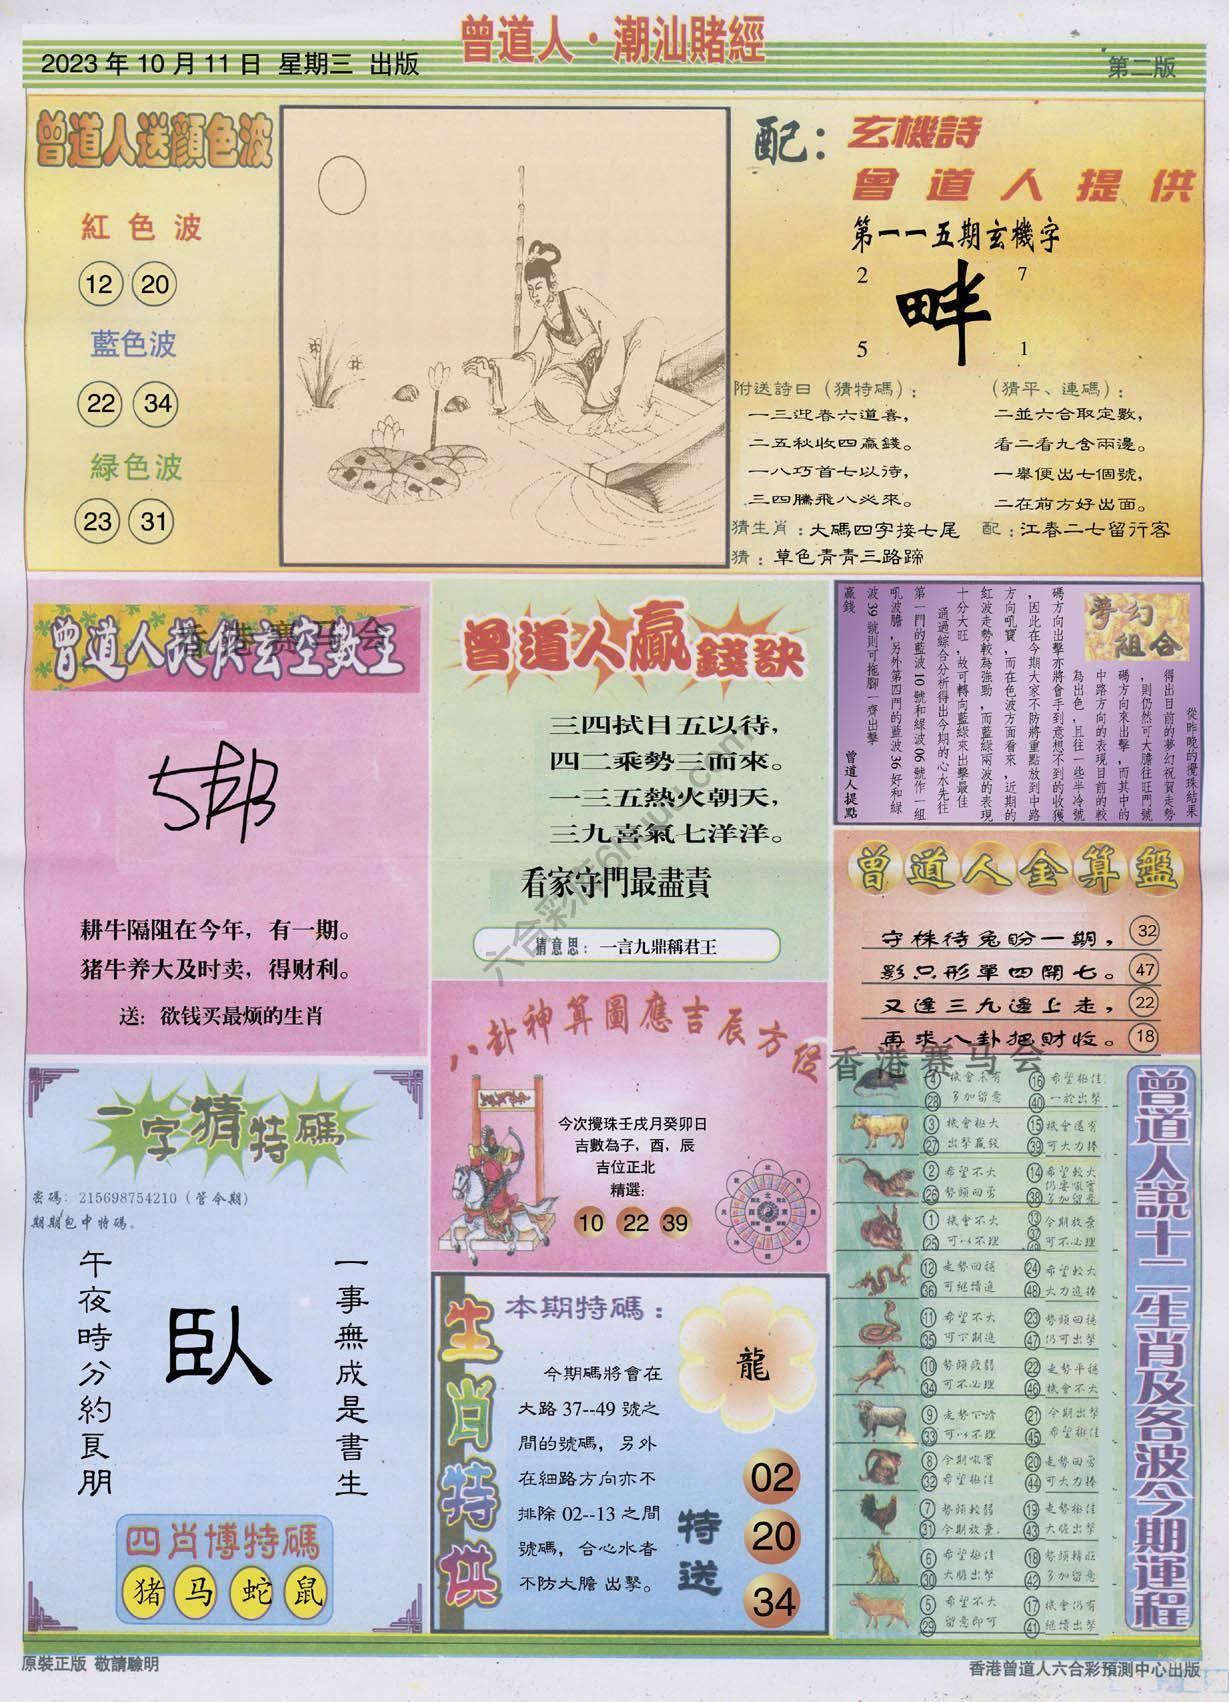 曾道人·潮汕賭經
2023年10月11日 星期三 出版
第二版
曾道人送顔色波
紅色波
12 20
藍色波
22 34
緑色波
23 31
配：玄機詩
曾道人提供
第一一五期玄機字
2 7
畔
5 1
附送詩曰（猜特碼）：
一三迎春六道喜，
二五秋收四贏錢。
一八巧首七以待，
三四騰飛八必來。
（猜平、連碼）：
二並六合取定數，
看二看九含兩邊。
一舉便出七個號，
二在前方好出面。
猜生肖：大碼四字接七尾
配：江春二七留行客
猜：草色靑靑三路蹄
曾道人提供玄空數王
香港赛马会
耕牛隔阻在今年，有一期。
猪牛养大及时卖，得财利。
送：欲钱买最烦的生肖
曾道人贏錢訣
三四拭目五以待，
四二乘勢三而來。
一三五熱火朝天，
三九喜氣七洋洋。
看家守門最盡責
猜意思：一言九鼎稱君王
夢幻組合
從昨晚的攪珠結果
得出目前的夢幻祝賀走勢
，則仍然可大膽往旺門號
碼方向來出擊，而其中的
中路方向的表現目前的較
為出色，且往一些半冷號
碼方向出擊亦將會手到意想不到的收獲
，因此在今期大家不防將重點放到中路
方向吼寶，而在色波方面看來，近期的
紅波走勢較為強勁，而藍綠兩波的表現
十分大旺，故可轉向藍綠來出擊最佳
通過綜合分析得出今期的心水先往
第一門的藍波10號和綠波06號作一組
吼波膽，另外第四門的藍波36好和綠
波39號則可拖腳一齊出擊
贏錢
曾道人提點
曾道人金算盤
守株待兔盼一期， 32
影只形單四開七。 47
又逢三九邊上走， 22
再求八卦把財收。 18
香港赛马会
八卦神算圖應吉辰方位
今次攪珠壬戌月癸卯日
吉數為子，酉，辰
吉位正北
精選：
10 22 39
一字猜特碼
密碼：215698754210（管令期）
期期包中特碼。
一事無成是書生
臥
午夜時分約良朋
四肖博特碼
猪 马 蛇 鼠
生肖特供
本期特碼：
龍
今期碼將會在
大路37--49號之
間的號碼，另外
在細路方向亦不
排除02--13之間
號碼，合心水者
不防大膽 出擊。
特送
02
20
34
曾道人説十二生肖及各波今期運程
4 28 機會未有 多加留意 16 40 希望極佳 一於出擊
3 27 機會極大 出擊贏錢 15 39 機會還有 可大力捧
2 26 希望不大 勢頭回勇 14 38 希望較大 多加留意
1 25 機會不大 可以不理 13 37 今期放棄 可不必理
12 36 走勢回穩 可繼續追 24 48 希望較大 大力追捧
11 35 希望不大 可下期追 23 47 勢頭回穩 仍可出擊
10 34 勢頭疲弱 可不必理 22 46 走勢平穩 機會不大
9 33 走勢下滑 可以不理 21 45 今期出擊 希望極佳
8 32 今期吼寶 希望極佳 20 44 走勢回勇 可大力捧
7 31 勢頭較弱 今期放棄. 19 43 走勢極佳 大膽出擊
6 30 希望極佳 大膽出擊 18 42 勢頭轉旺 多加留意
5 29 希望不大 留意即可 17 41 機會仍有 繼續出擊
原裝正版 敬請驗明
香港曾道人六合彩預測中心出版